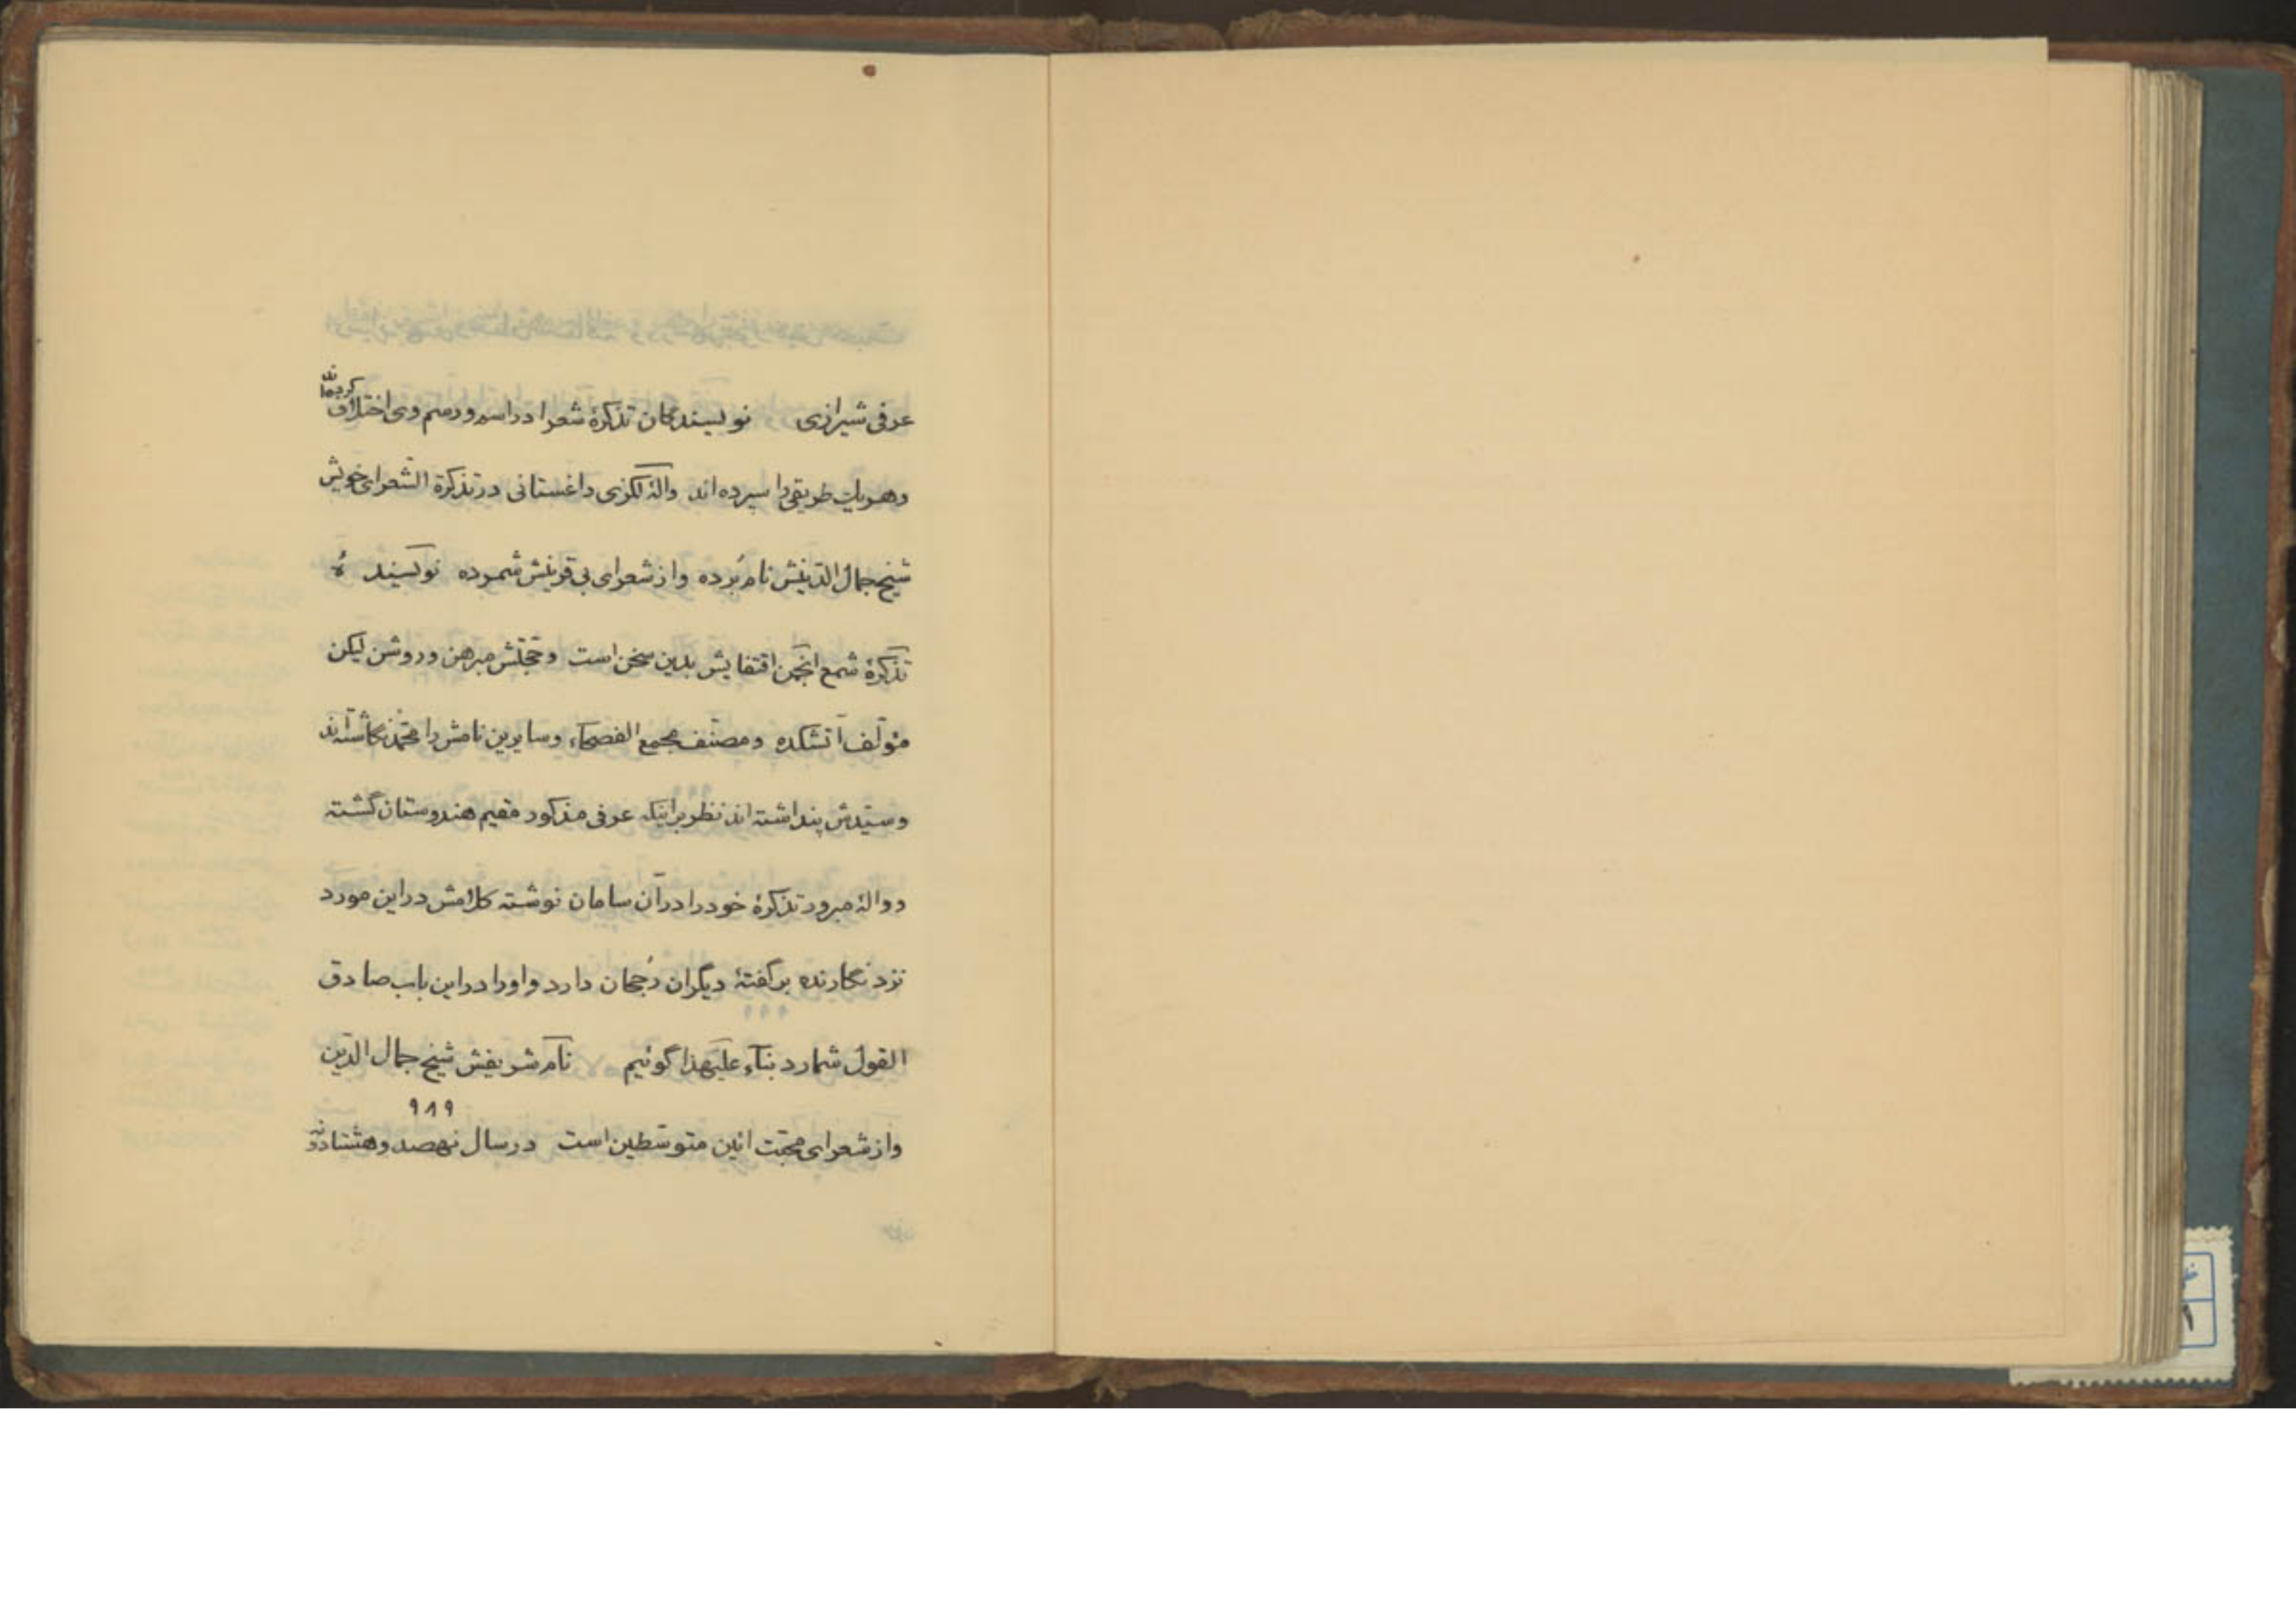 عرفی شیرازی نویسندگان تذکرهٔ شعرا در اسم و رسم وی اختلاف کرده‌اند
و هر یک طریقی را سپرده‌اند والهٔ لکزی داغستانی در تذکرة الشعرای خویش
شیخ جمال الدینش نام بُرده و از شعرای بی قرینش شمرده نویسندهٔ
تذکرهٔ شمع انجمن اقتفایش بدین سخن است و حجّتش مبرهن و روشن لیکن
مؤلف آتشکده و مصنف مجمع الفصحآء و سایرین نامش را محمّد نگاشته‌اند
و سیّدش پنداشته‌اند نظر براینکه عرفی مذکور مقیم هندوستان گشته
و والهٔ مبرور تذکرهٔ خود را در آن سامان نوشته کلامش در این مورد
نزد نگارنده بر گفتهٔ دیگران رُجحان دارد و او را در این باب صادق
القول شمارد بنآء علیهذا گوئیم نام شریفش شیخ جمال الدّین
۹۸۹
و از شعرای محبّت آئین متوسّطین است در سال نهصد و هشتاد و نه